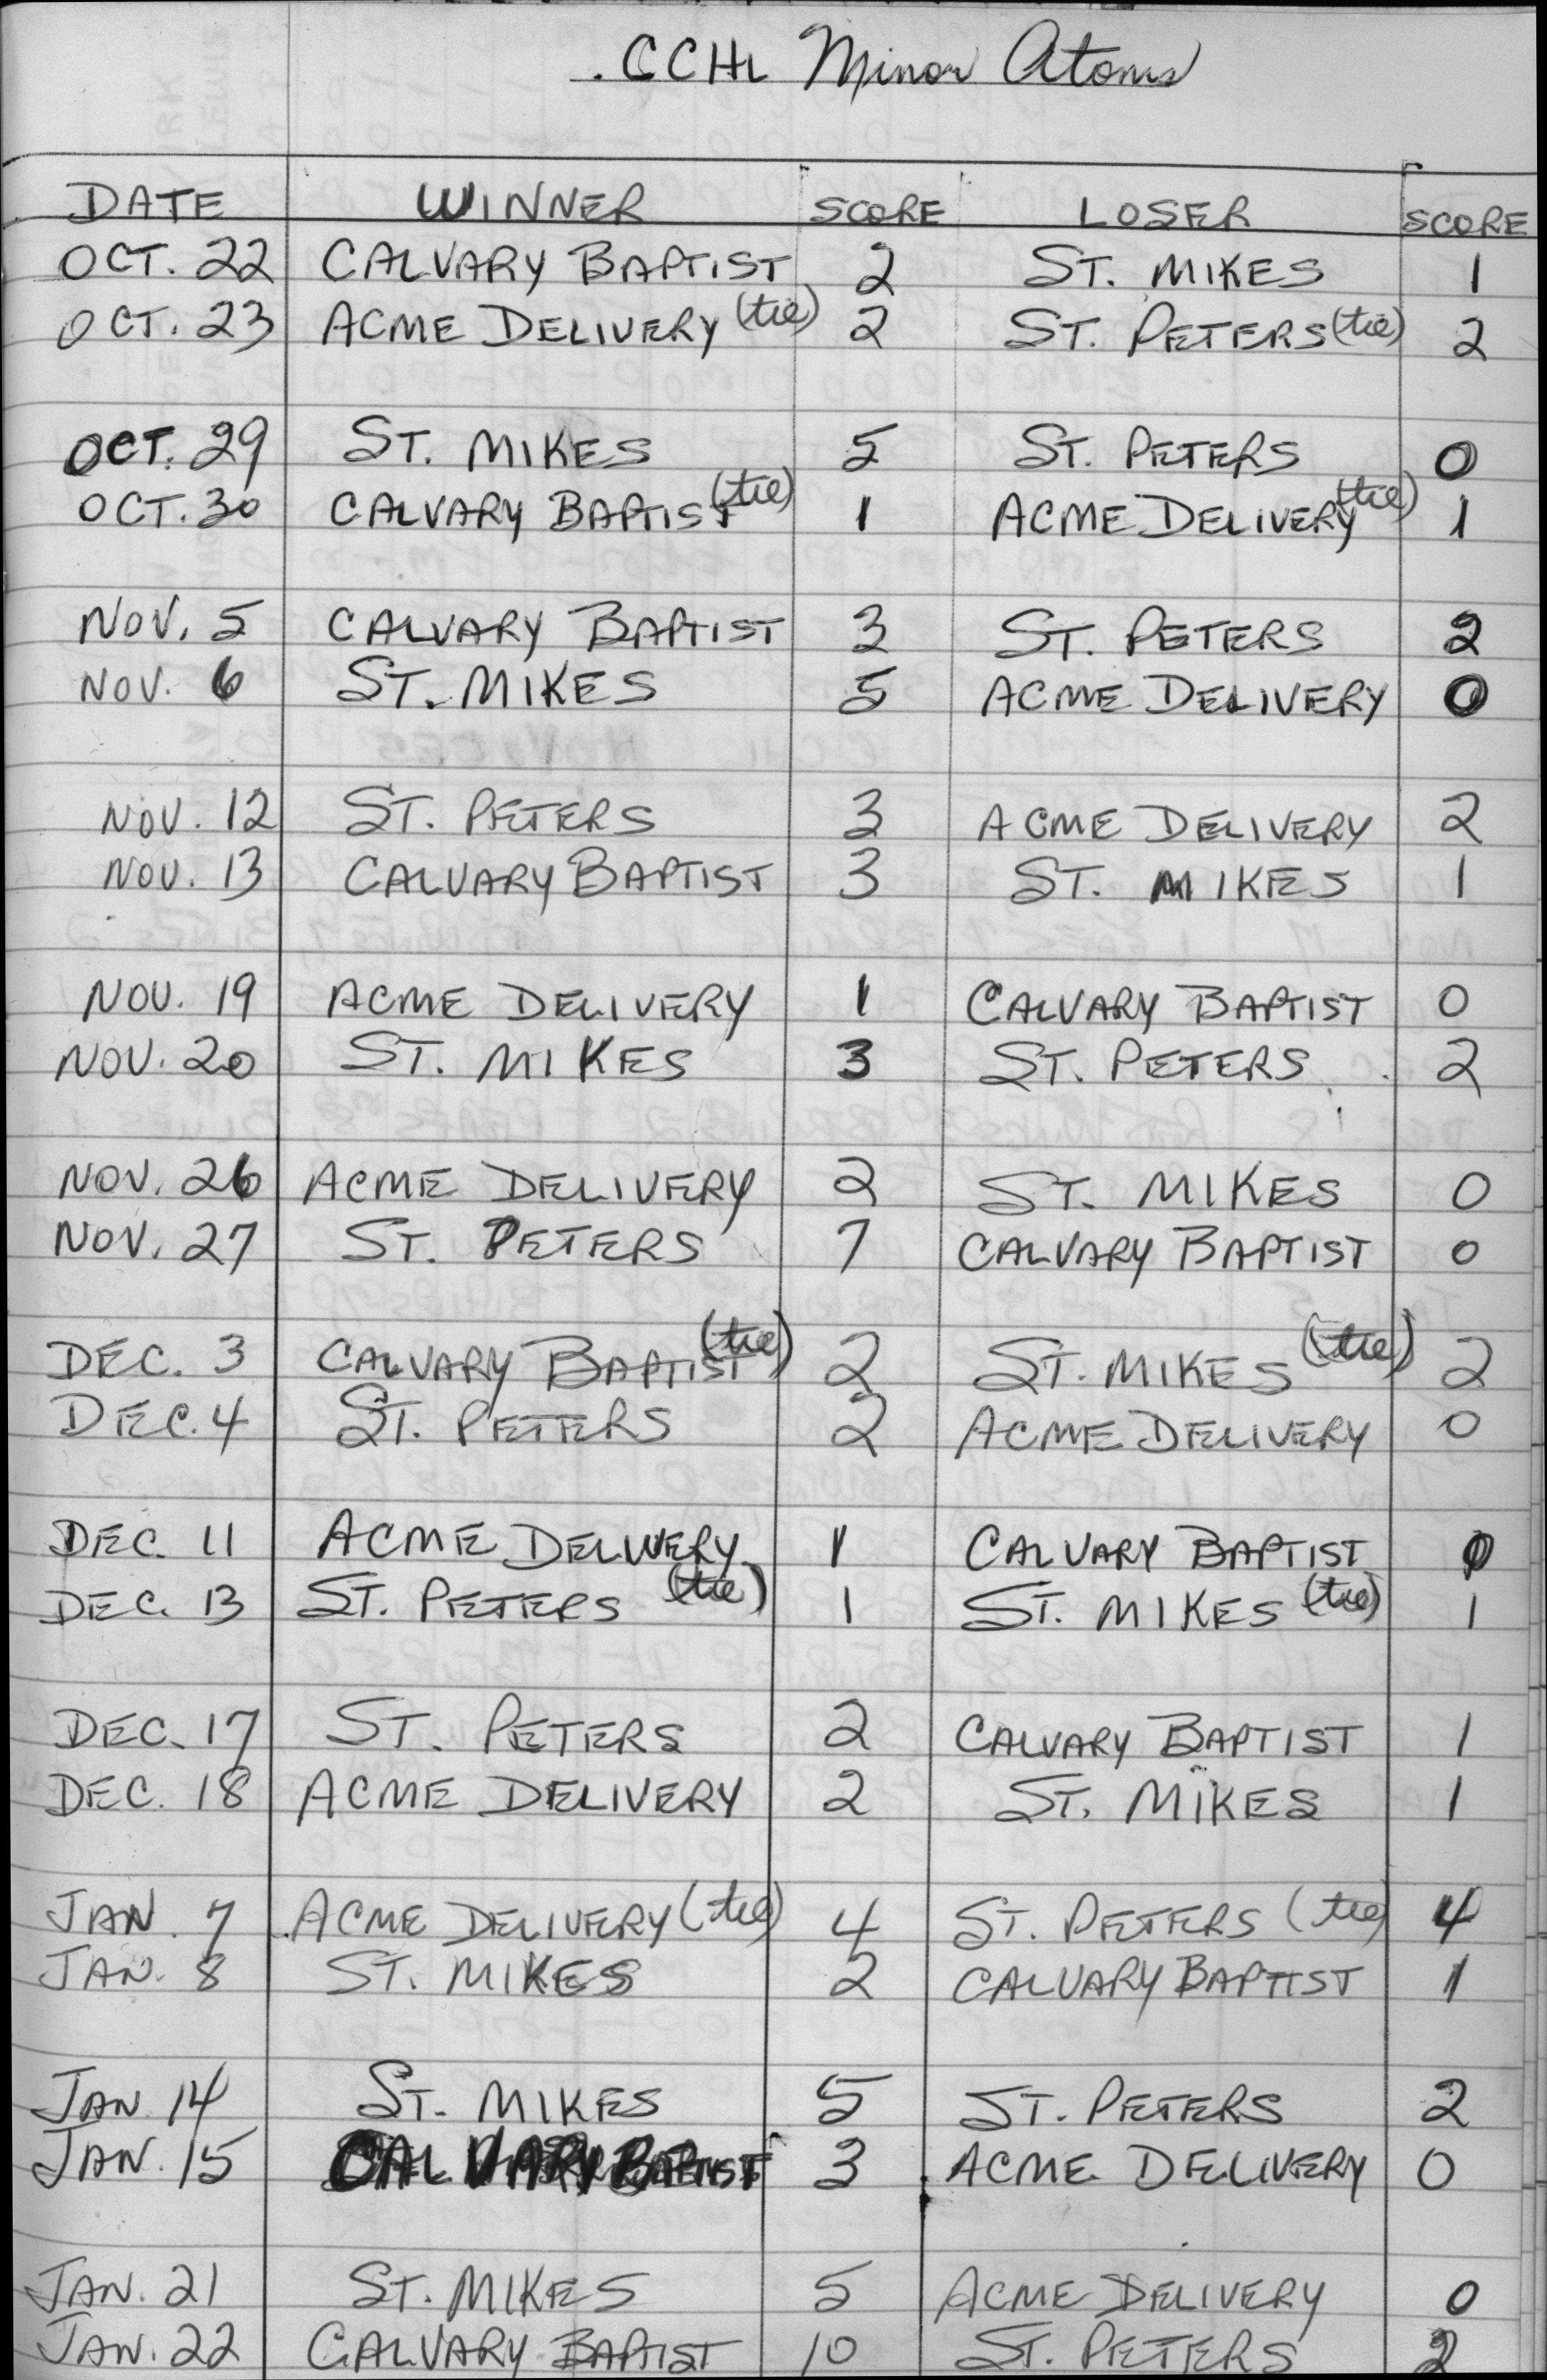 CCHL Minor Atoms
DATE WINNER SCORE LOSER SCORE
OCT. 22 CALVARY BAPTIST 2 ST. MIKES 1
OCT. 23 ACME DELIVERY (tie) 2 ST. PETERS (tie) 2
OCT. 29 ST. MIKES 5 ST. PETERS 0
OCT. 30 CALVARY BAPTIST (tie) 1 ACME DELIVERY (tie) 1
NOV. 5 CALVARY BAPTIST 3 ST. PETERS 2
NOV. 6 ST. MIKES 5 ACME DELIVERY 0
NOV. 12 ST. PETERS 3 ACME DELIVERY 2
NOV. 13 CALVARY BAPTIST 3 ST. MIKES 1
NOV. 19 ACME DELIVERY 1 CALVARY BAPTIST 0
NOV. 20 ST. MIKES 3 ST. PETERS 2
NOV. 26 ACME DELIVERY 2 ST. MIKES 0
NOV. 27 ST. PETERS 7 CALVARY BAPTIST 0
DEC. 3 CALVARY BAPTIST (tie) 2 ST. MIKES (tie) 2
DEC. 4 ST. PETERS 2 ACME DELIVERY 0
DEC. 11 ACME DELIVERY 1 CALVARY BAPTIST 0
DEC. 13 ST. PETERS (tie) 1 ST. MIKES (tie) 1
DEC. 17 ST. PETERS 2 CALVARY BAPTIST 1
DEC. 18 ACME DELIVERY 2 ST. MIKES 1
JAN. 7 ACME DELIVERY (tie) 4 ST. PETERS (tie) 4
JAN. 8 ST. MIKES 2 CALVARY BAPTIST 1
JAN. 14 ST. MIKES 5 ST. PETERS 2
JAN. 15 CALVARY BAPTIST 3 ACME DELIVERY 0
JAN. 21 ST. MIKES 5 ACME DELIVERY 0
JAN. 22 CALVARY BAPTIST 10 ST. PETERS 2